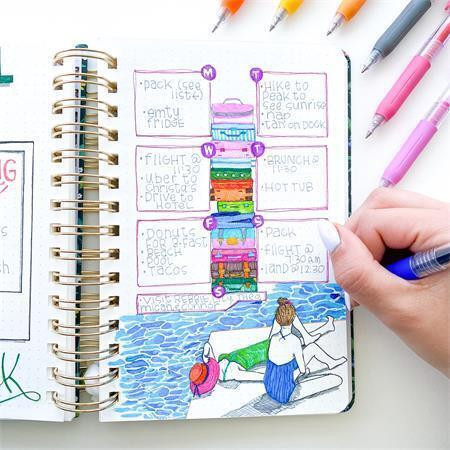 M
• pack (see
list)
• emty
fridge
T
• Hike to
Peak to
see sunrise
• nap
• tan on dock
W
• flight @
11:30
• Uber to
Christa's
• Drive to
Hotel
T
• Brunch @
11:30
• Hot tub
F
• Donuts
for
• Beach
• Pool
• Tacos
S
• Pack
• flight @
7:30 am
• land @ 12:30
S
Visit
NG
K